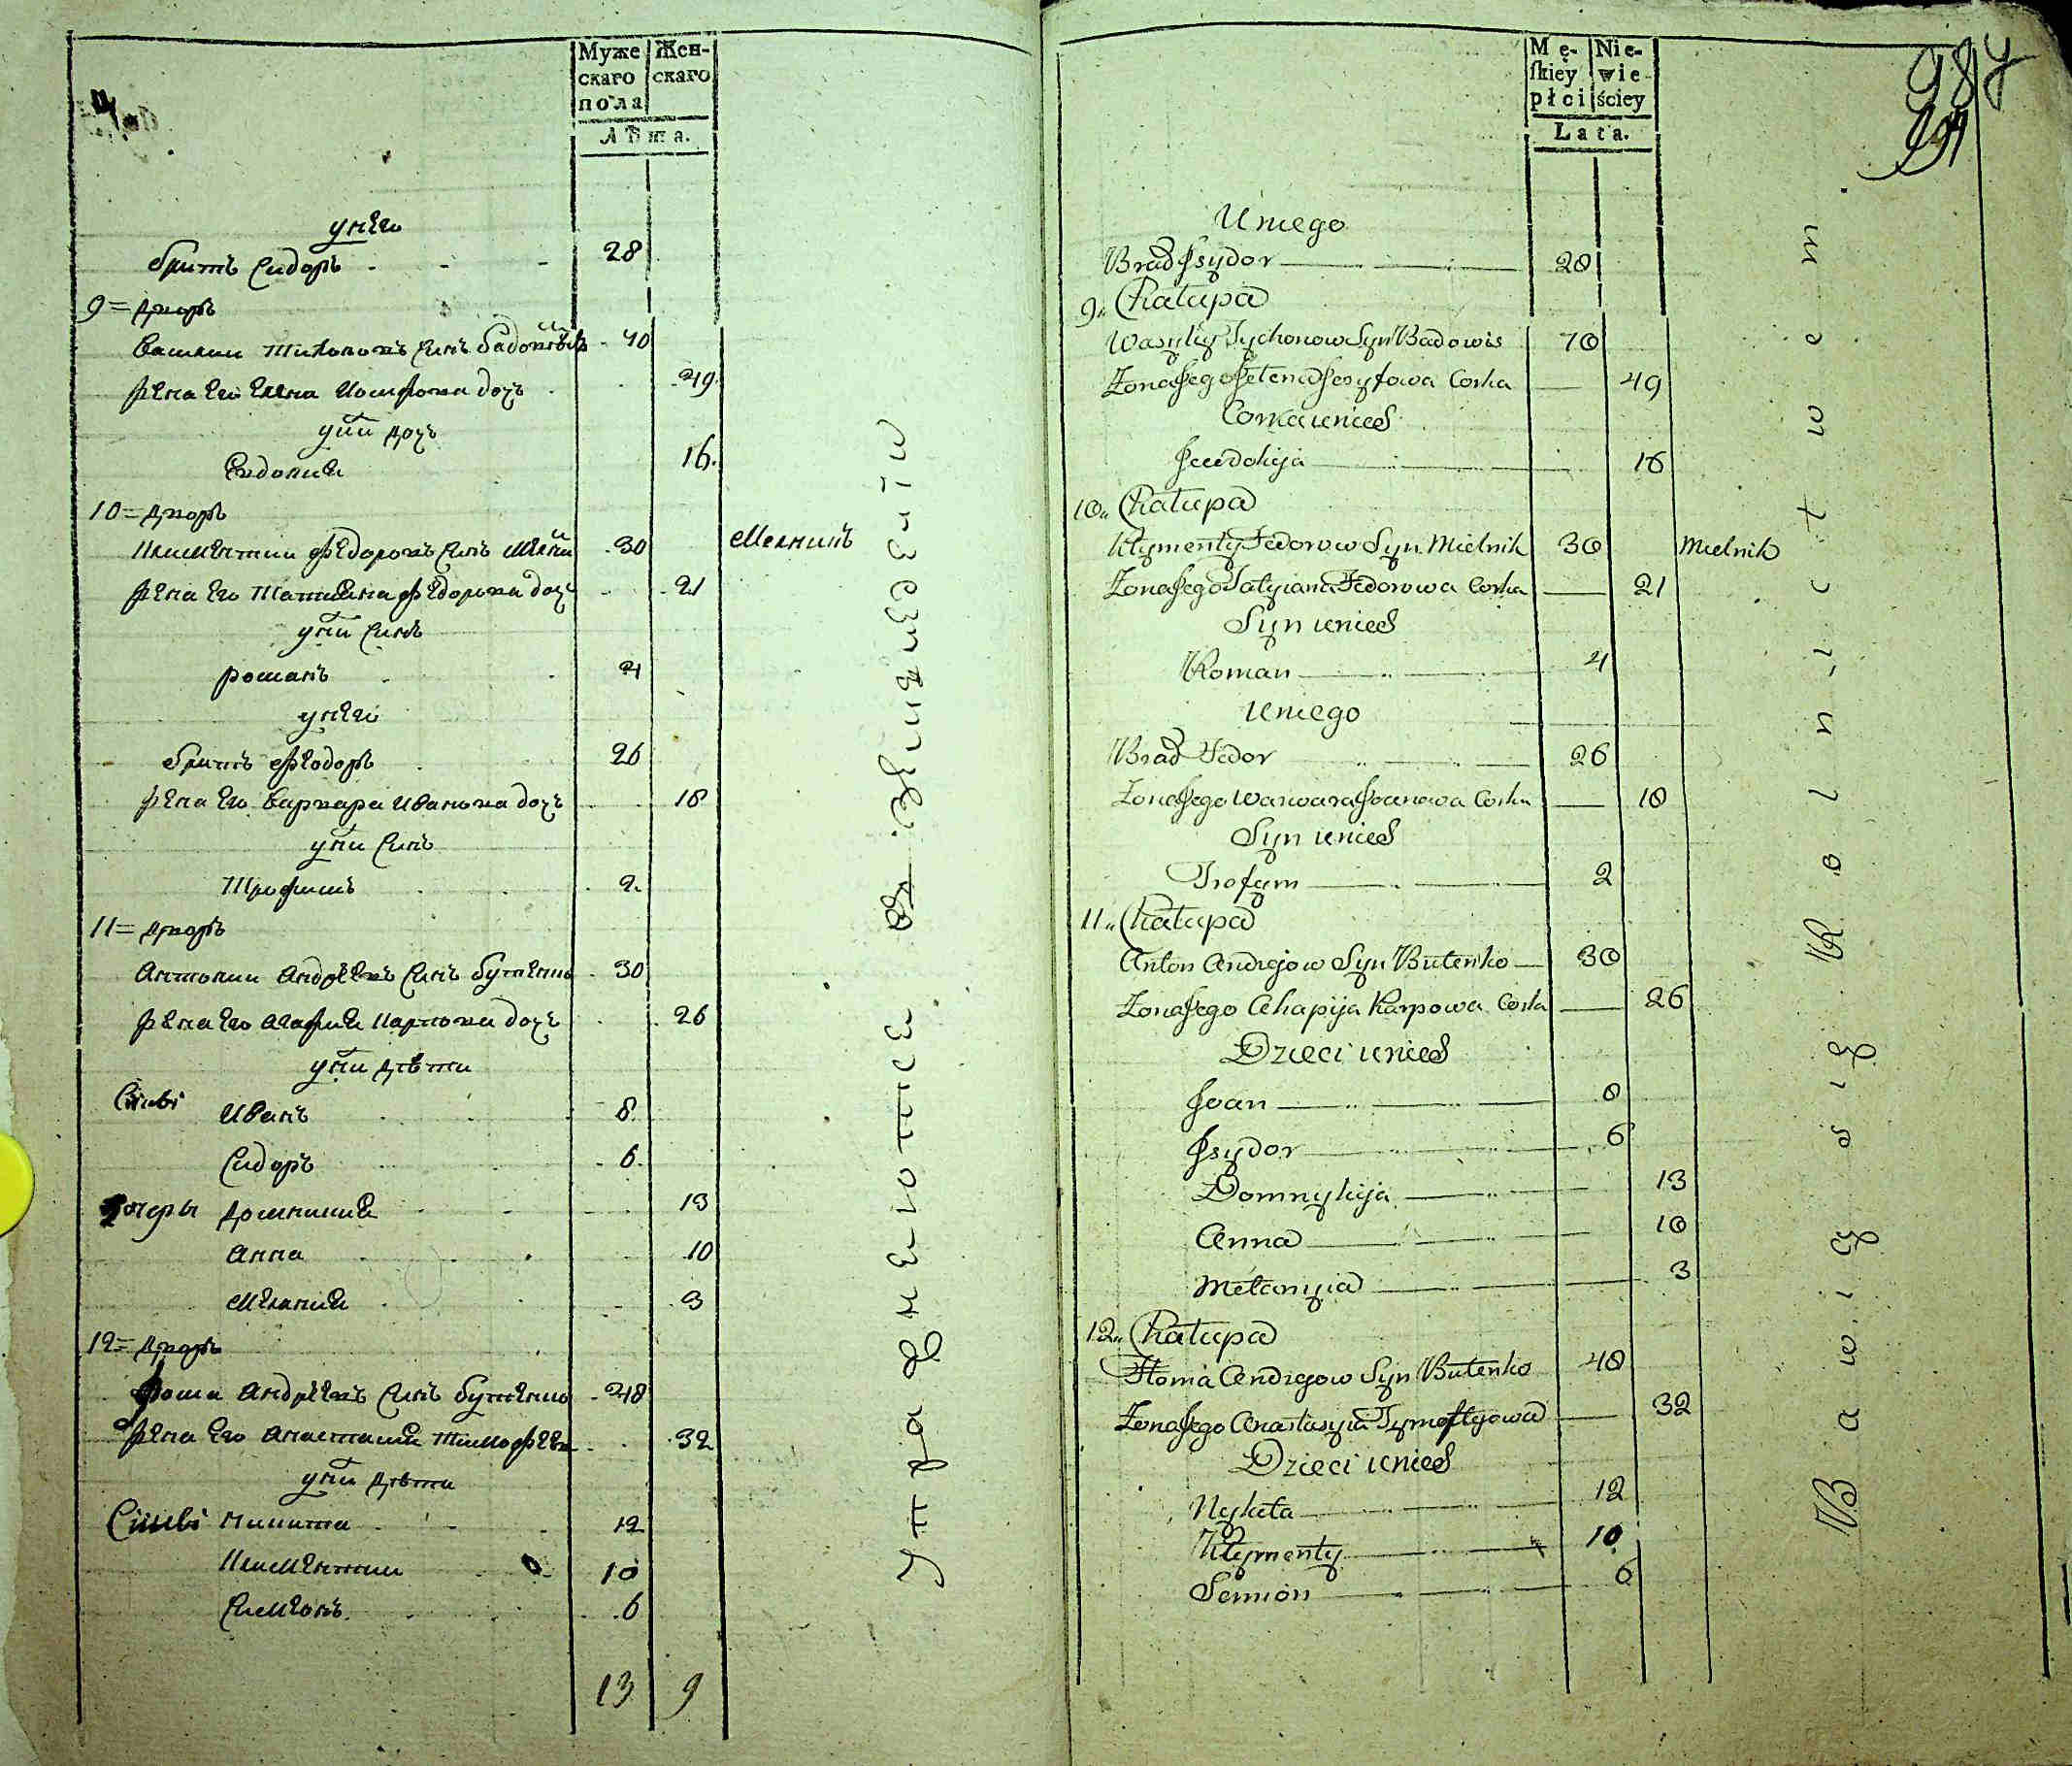 Муже
скаго
пола
Жен-
скаго
Лѣта.
у него
братъ Сидоръ 28
9 = дворъ
Василий Тихоновъ синъ Бадовскій 70
жена его Елена Иосифова дочь 49
у них дочь
Евдокия 16
10 = дворъ
Климентий Федоровъ синъ Мелник 30 Мелникъ
жена его Татияна Федорова дочь 21
у них синъ
Романъ 4
у него
братъ Феодоръ 26
жена его Варвара Иванова дочь 18
у них синъ
Трофимъ 2
11 = дворъ
Антоний Андрѣевъ синъ Бутенко 30
жена его Агафия Карпова дочь 26
у них дѣти
Синві Иванъ 8
Сидоръ 6
дочеры Домникия 13
Анна 10
Мелания 3
12 = дворъ
Фома Андрѣевъ синъ Бутенко 48
жена его Анастасия Тимофѣева 32
у них дѣти
Синві Никита 12
Климентий 10
Симеонъ 6
13 9
Упражненются въ Земледелѣи
Mę-
ſkiéy
płci
Nie-
wie
ściey
Lata.
987
U niego
Brad Jsydor 28
9. Chałupa
Wasyliy Tychonow Syn Badowis 70
Żona Jego Jełena Josyfowa Corka 49
Corka u nied
Jewdokija 16
10. Chałupa
Kłymentÿ Fedorow Syn Mielnik 30 Mielnik
Żona Jego Tatyiana Fedorowa Corka 21
Syn u nied
Roman 4
U niego
Brad Fedor 26
Żona Jego Warwara Joanowa Corka 18
Syn u nied
Trofym 2
11. Chałupa
Anton Andrejow Syn Butenko 30
Żona Jego Ahapija Karpowa Corka 26
Dzieci u nied
Joan 8
Jsydor 6
Domnykija 13
Anna 10
Mełanyia 3
12. Chałupa
Homa Andrejow Syn Butenko 48
Żona Jego Anastasyia Tymoftyowa 32
Dzieci u nied
Nykita 12
Kłymentÿ 10
Semion 6
Bawią się Rolnictwem